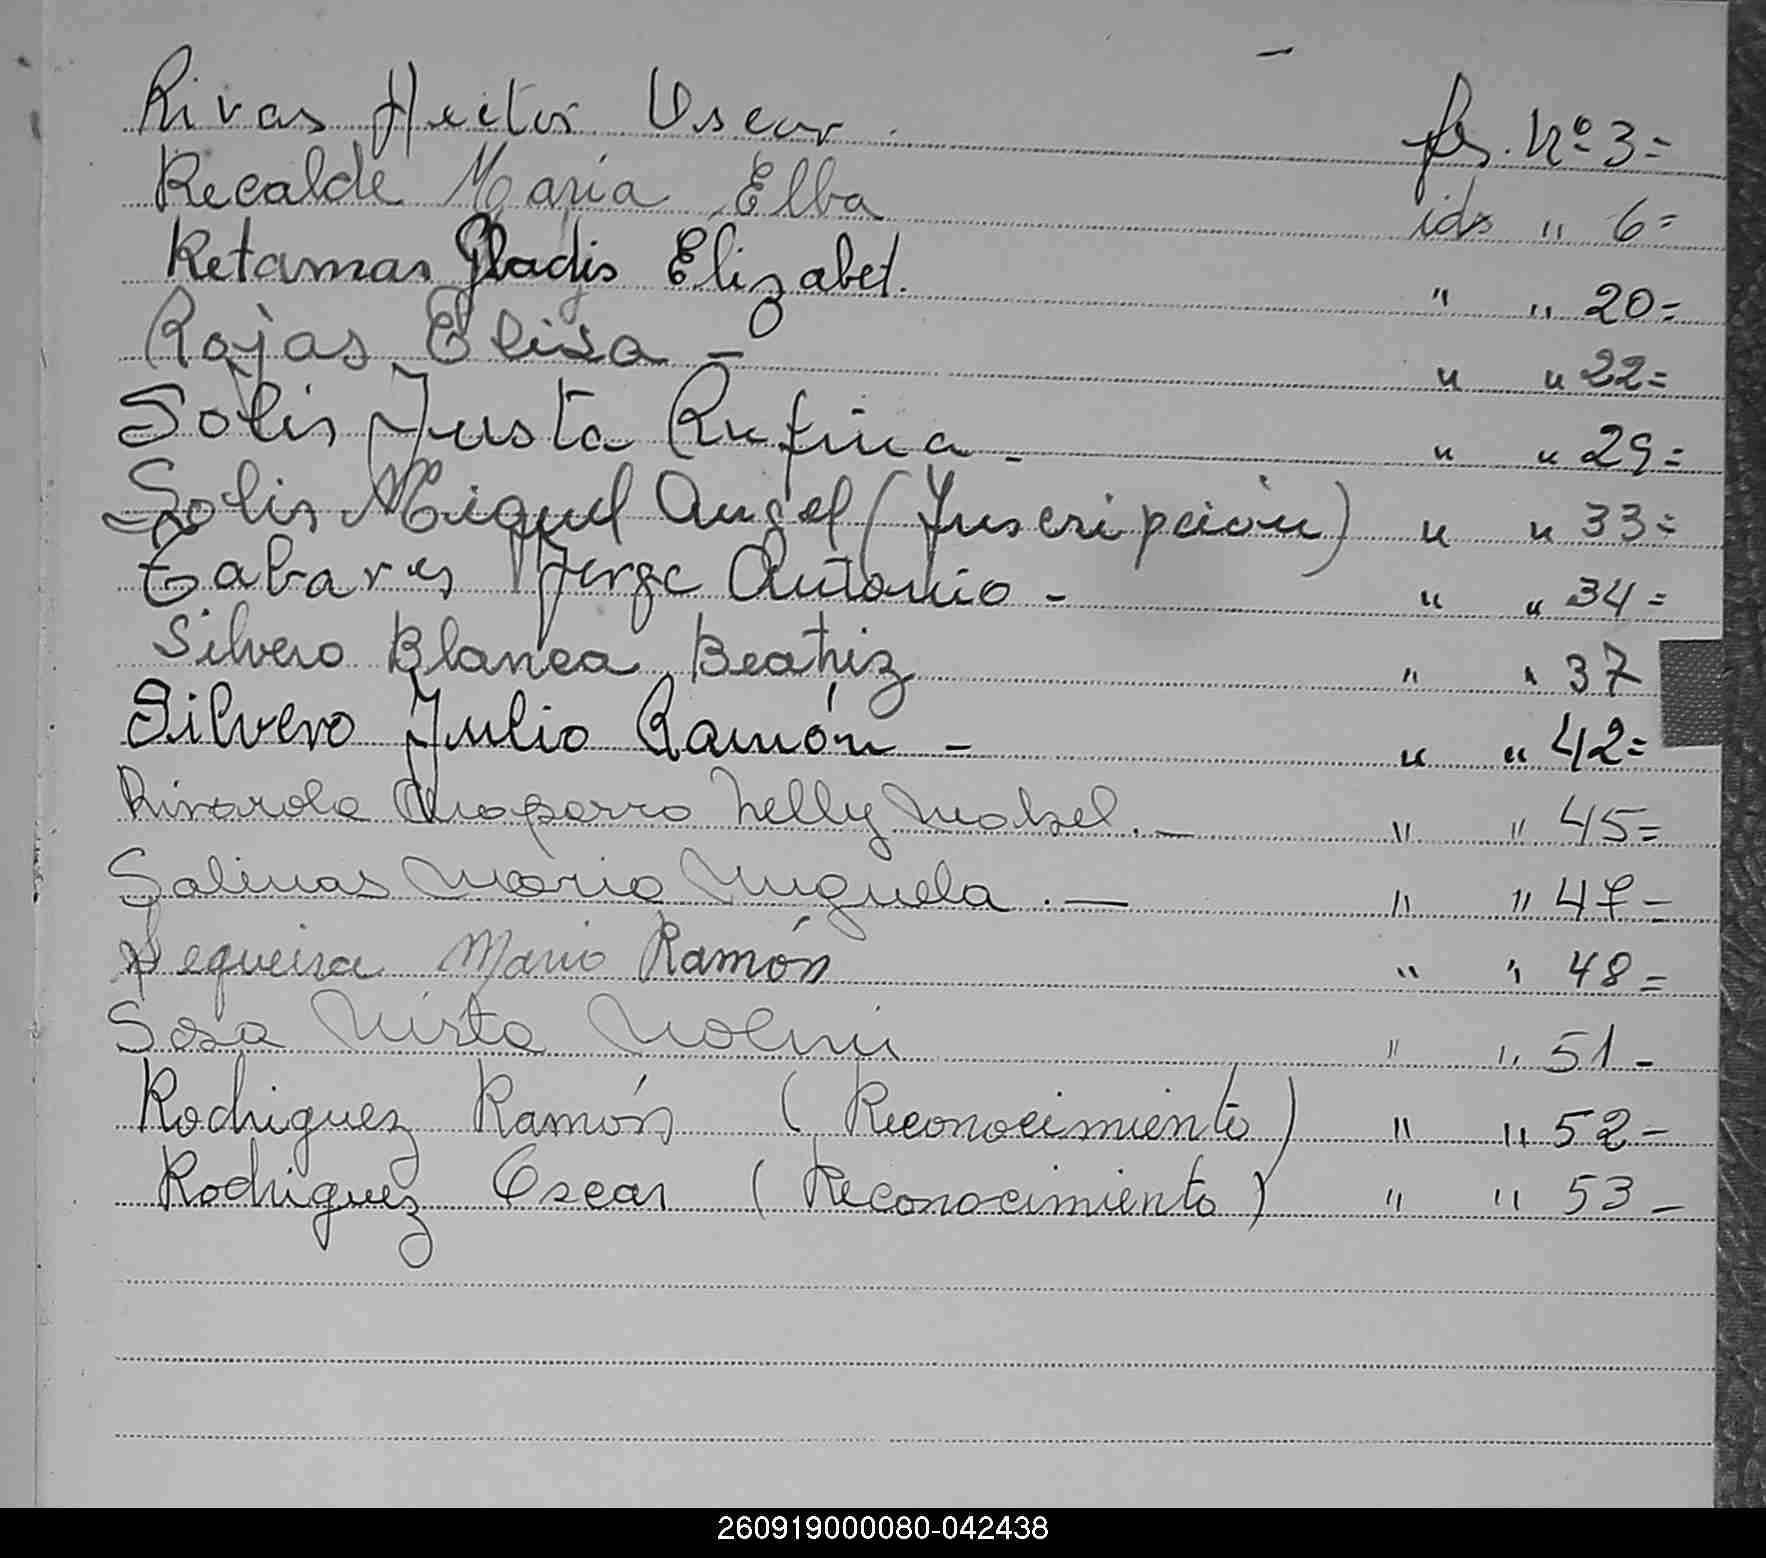 Rivas Hector Oscar. fs. Nº 3=
Recalde María Elba ids " 6=
Retamar Gladis Elizabet. " " 20=
Rojas Elisa - " " 22=
Solis Justa Rufina - " " 29=
Solis Miguel Angel (Inscripción) " " 33=
Tabares Jorge Antonio - " " 34=
Silvero Blanca Beatriz " " 37
Silvero Julio Ramón - " " 42=
Rivarola Chaparro Nelly Mabel. - " " 45=
Salinas Maria Miguela. — " " 47-
Sequeira Mario Ramón " " 48=
Sosa Mirta " " 51-
Rodriguez Ramón (Reconocimiento) " " 52-
Rodriguez Oscar (Reconocimiento) " " 53-
260919000080-042438